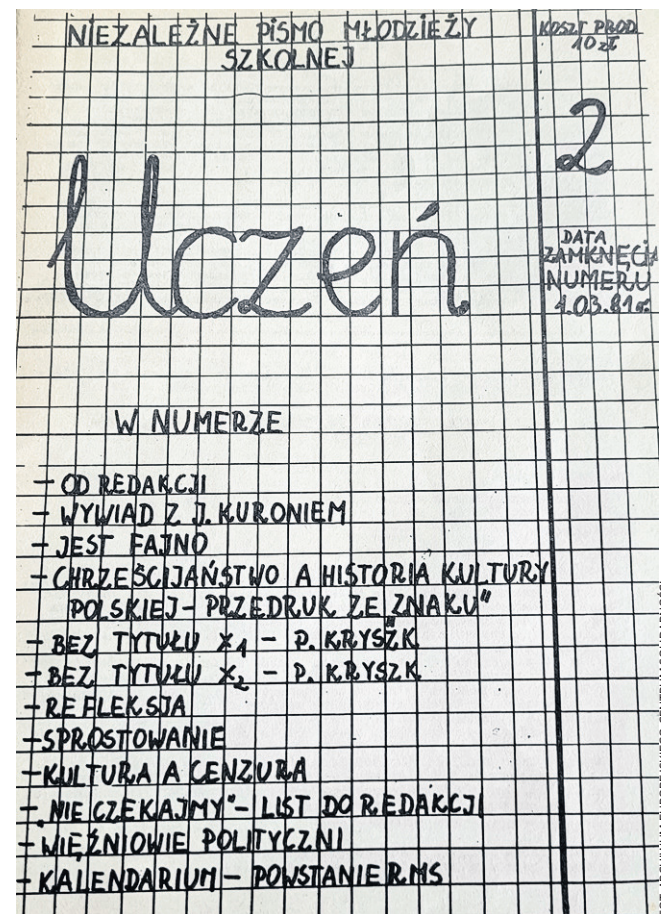 NIEZALEŻNE PISMO MŁODZIEŻY
SZKOLNEJ
KOSZT PROD.
10 zł
2
Uczeń
DATA
ZAMKNĘCIA
NUMERU
1.03.81r.
W NUMERZE
- OD REDAKCJI
- WYWIAD Z J. KURONIEM
- JEST FAJNO
- CHRZEŚCIJAŃSTWO A HISTORIA KULTURY
POLSKIEJ - PRZEDRUK ZE ZNAKU"
- BEZ TYTUŁU X₁ - P. KRYSZK
- BEZ TYTUŁU X₂ - P. KRYSZK
- REFLEKSJA
- SPROSTOWANIE
- KULTURA A CENZURA
- „NIE CZEKAJMY" - LIST DO REDAKCJI
- WIĘŹNIOWIE POLITYCZNI
- KALENDARIUM - POWSTANIE RMS